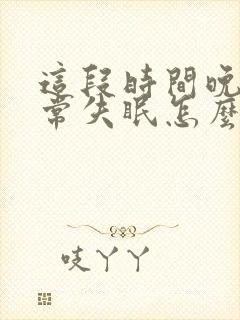 這段時間晚
常失眠怎麼
吱丫丫